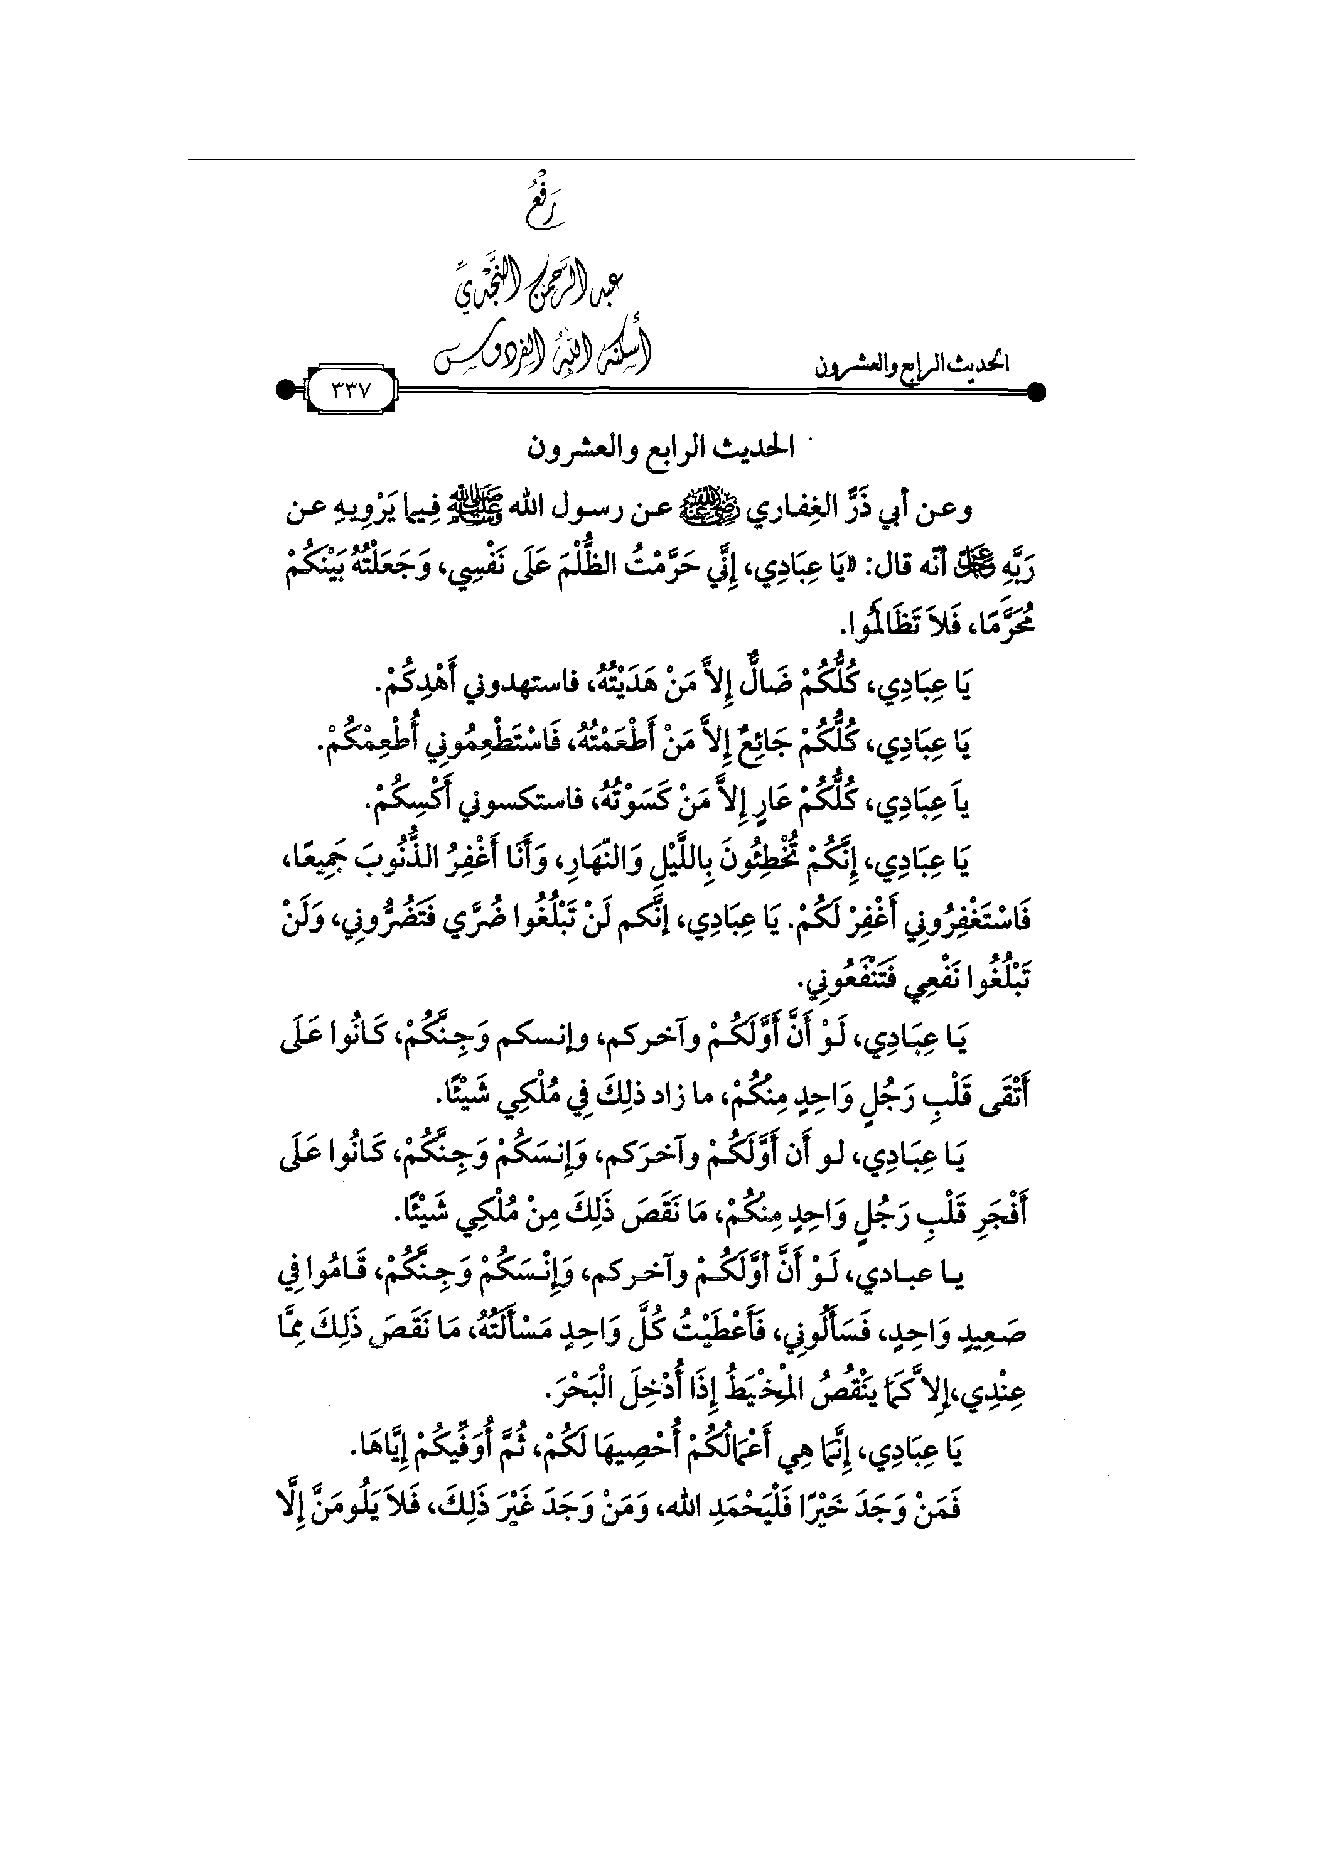 رَفْعُ
عبد الرحمن النَّجْدِيِّ
أسكنه اللهُ الفردوس
الحديث الرابع والعشرون
٣٣٧
الحديث الرابع والعشرون
وعـن أبي ذَرٍّ الغِفـاري رضي الله عنه عـن رسـول الله ﷺ فِـيما يَرْوِيـهِ عـن
رَبِّهِ عز وجل أنّه قال: «يَا عِبَادِي، إِنِّي حَرَّمْتُ الظُّلْمَ عَلَى نَفْسِي، وَجَعَلْتُهُ بَيْنَكُمْ
مُحَرَّمًا، فَلاَ تَظَالَمُوا.
يَا عِبَادِي، كُلُّكُمْ ضَالٌّ إِلاَّ مَنْ هَدَيْتُهُ، فاستهدوني أَهْدِكُمْ.
يَا عِبَادِي، كُلُّكُمْ جَائِعٌ إِلاَّ مَنْ أَطْعَمْتُهُ، فَاسْتَطْعِمُوني أُطْعِمْكُمْ.
ياَ عِبَادِي، كُلُّكُمْ عَارٍ إِلاَّ مَنْ كَسَوْتُهُ، فاستكسوني أَكْسِكُمْ.
يَا عِبَادِي، إِنَّكُمْ تُخْطِئُونَ بِاللَّيْلِ وَالنّهَارِ، وَأَنَا أَغْفِرُ الذُّنُوبَ جَمِيعًا،
فَاسْتَغْفِرُوني أَغْفِرْ لَكُمْ. يَا عِبَادِي، إِنَّكم لَنْ تَبْلُغُوا ضُرِّي فَتَضُرُّوني، وَلَنْ
تَبْلُغُوا نَفْعِي فَتَنْفَعُوني.
يَـا عِبَـادِي، لَـوْ أَنَّ أَوَّلَكُـمْ وآخـركم، وإنـسكم وَجِـنَّكُمْ، كَـانُوا عَـلَى
أَتْقَى قَلْبِ رَجُلٍ وَاحِدٍ مِنكُمْ، ما زاد ذلِكَ فِي مُلْكِي شَيْئًا.
يَـا عِبَـادِي، لـو أن أَوَّلَكُـمْ وآخـرَكم، وَإِنـسَكُمْ وَجِـنَّكُمْ، كَـانُوا عَـلَى
أَفْجَرِ قَلْبِ رَجُلٍ وَاحِدٍ مِنكُمْ، مَا نَقَصَ ذَلِكَ مِنْ مُلْكِي شَيْئًا.
يـا عبـادي، لَـوْ أَنَّ أوَّلَكُـمْ وآخـركم، وَإِنْـسَكُمْ وَجِـنَّكُمْ، قَـامُوا فِي
صَـعِيدٍ وَاحِدٍ، فَسَأَلُوني، فَأَعْطَيْتُ كُلَّ وَاحِدٍ مَسْأَلَتَهُ، مَا نَقَصَ ذَلِكَ مِمَّا
عِنْدِي،إِلاَّ كَمَا يَنْقُصُ المِخْيَطُ إِذَا أُدْخِلَ الْبَحْرَ.
يَا عِبَادِي، إِنَّمَا هِي أَعْمَالُكُمْ أُحْصِيهَا لَكُمْ، ثُمَّ أُوَفِّيكُمْ إِيَّاهَا.
فَمَنْ وَجَدَ خَيْرًا فَلْيَحْمَدِ الله، وَمَنْ وَجَدَ غَيْرَ ذَلِكَ، فَلاَ يَلُومَنَّ إِلَّا